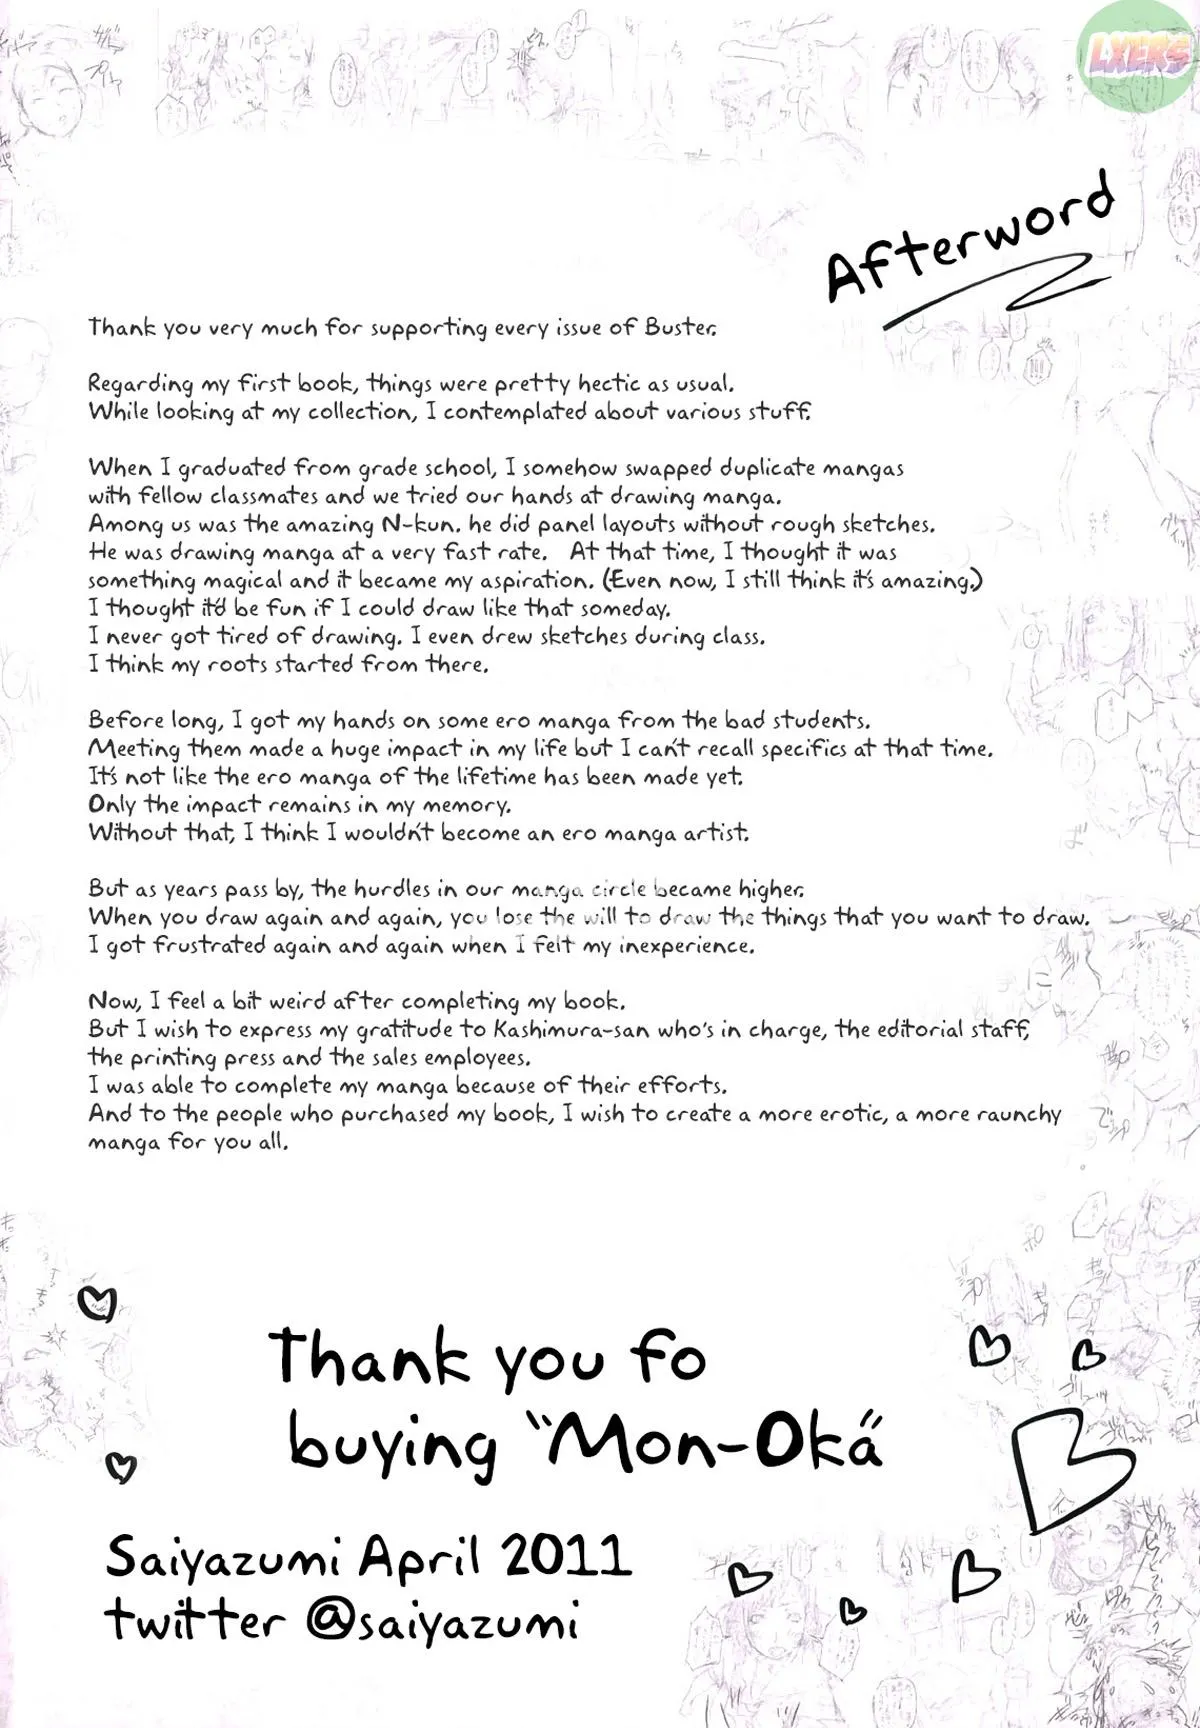 LXERS
Afterword
Thank you very much for supporting every issue of Buster.
Regarding my first book, things were pretty hectic as usual.
While looking at my collection, I contemplated about various stuff.
When I graduated from grade school, I somehow swapped duplicate mangas
with fellow classmates and we tried our hands at drawing manga.
Among us was the amazing N-kun. he did panel layouts without rough sketches.
He was drawing manga at a very fast rate. At that time, I thought it was
something magical and it became my aspiration. (Even now, I still think it's amazing.)
I thought it'd be fun if I could draw like that someday.
I never got tired of drawing. I even drew sketches during class.
I think my roots started from there.
Before long, I got my hands on some ero manga from the bad students.
Meeting them made a huge impact in my life but I can't recall specifics at that time.
It's not like the ero manga of the lifetime has been made yet.
Only the impact remains in my memory.
Without that, I think I wouldn't become an ero manga artist.
But as years pass by, the hurdles in our manga circle became higher.
When you draw again and again, you lose the will to draw the things that you want to draw.
I got frustrated again and again when I felt my inexperience.
Now, I feel a bit weird after completing my book.
But I wish to express my gratitude to Kashimura-san who's in charge, the editorial staff,
the printing press and the sales employees.
I was able to complete my manga because of their efforts.
And to the people who purchased my book, I wish to create a more erotic, a more raunchy
manga for you all.
Thank you fo
buying "Mon-Oka"
Saiyazumi April 2011
twitter @saiyazumi